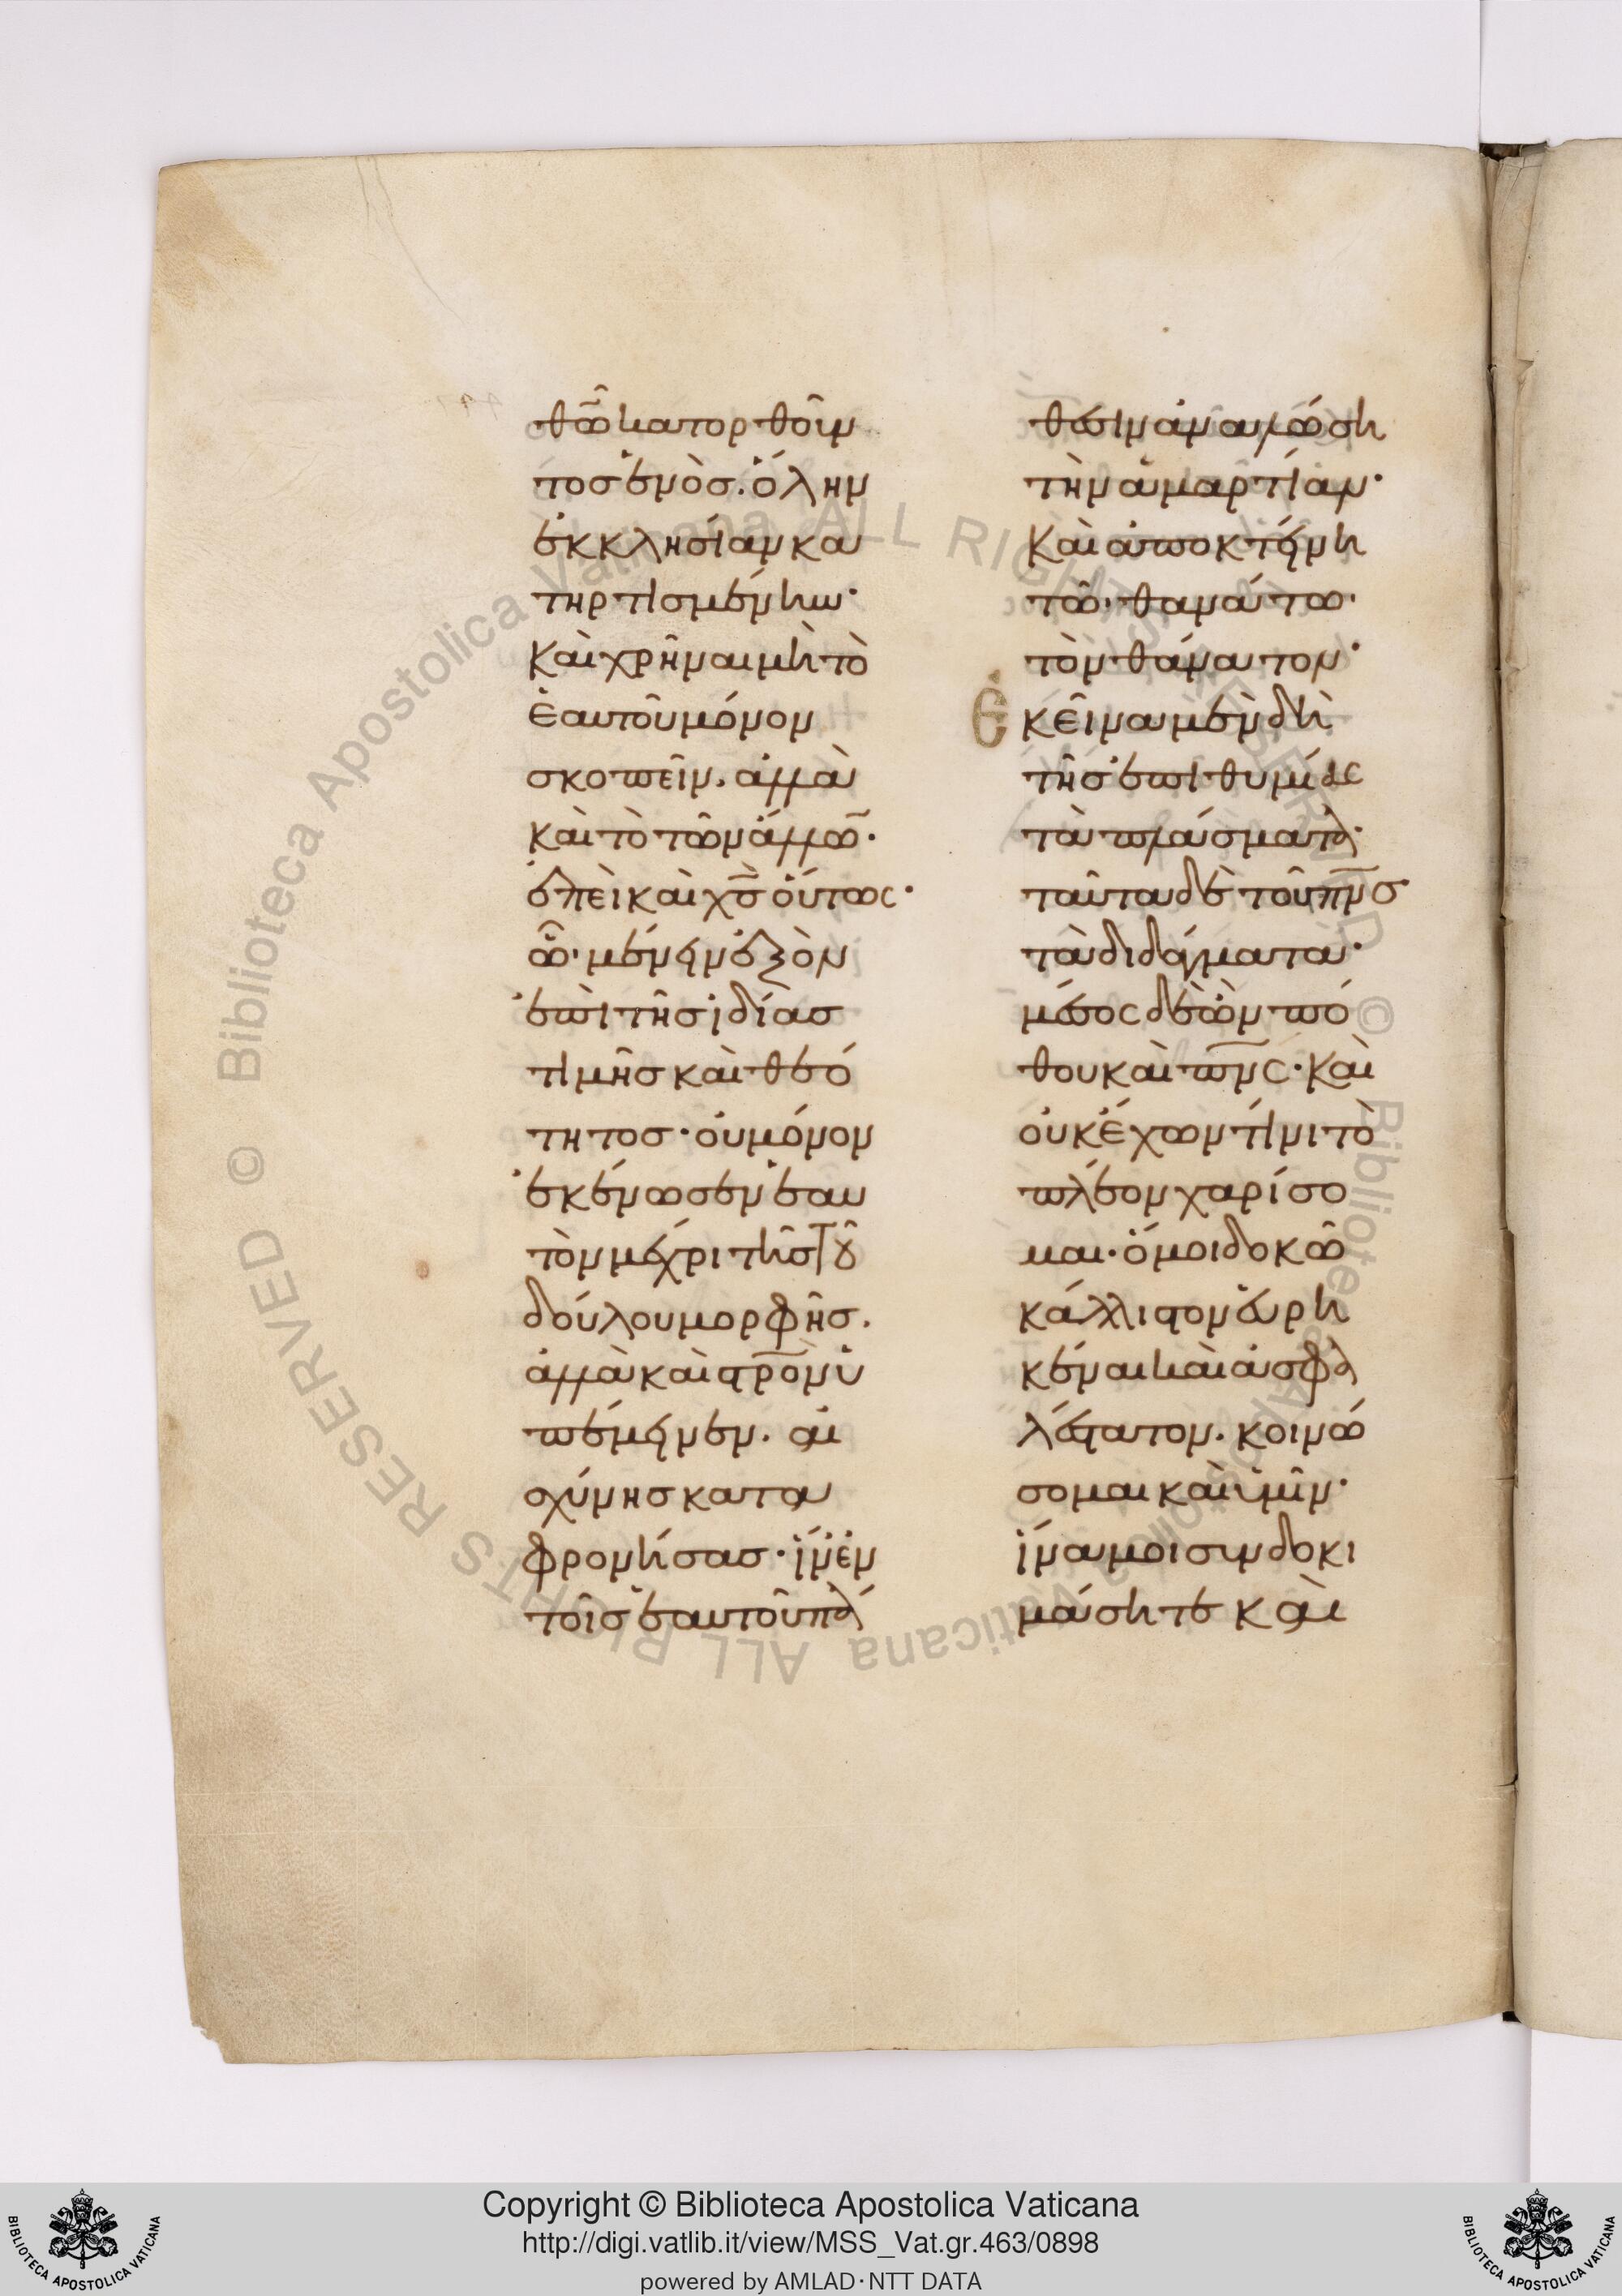 θῶ κατορθοῦν
τοσ ἑνὸσ. ὅλην
ἐκκλησίαν κα
τηρτισμένην·
Καὶ χρῆναι μὴ τὸ
ἑαυτοῦ μόνον
σκοπεῖν. ἀλλὰ
καὶ τὸ τῶν ἄλλω̅·
ἐπεὶ καὶ χ̅σ̅ οὕτως·
ᾧ· μένειν ἐξὸν
ἐπὶ τῆσ ἰδίασ
τιμῆσ καὶ θεό
τητοσ· οὐ μόνον
ἐκένωσεν ἑαυ
τὸν μέχρι τῆσ τοῦ
δούλου μορφῆσ.
ἀλλὰ καὶ σ̅ρ̅ο̅ν ὑ
πέμεινεν. αἰ
σχύνησ κατα
φρονήσασ· ἵν' ἐν
τοῖσ ἑαυτοῦ πά
θεσιν ἀναλώση
τὴν ἁμαρτίαν·
Καὶ ἀποκτείνη
τῶ· θανάτω·
τὸν θάνατον·
Ἐκεῖνα μὲν δὴ
τῆσ ἐπιθυμίας
τὰ πλάσματα·
ταῦτα δὲ τοῦ π̅ν̅σ̅·
τὰ διδάγματα·
μέσος δὲ ὢν πό
θου καὶ π̅ν̅ς̅· Καὶ
οὐκ ἔχων τίνι τὸ
πλέον χαρίσο
μαι· ὅ μοι δοκῶ
κάλλιστον εὑρη
κέναι καὶ ἀσφα
λέστατον. κοινώ
σομαι καὶ ὑμῖν·
ἵνα μοι συνδοκι
μάσητε καὶ
Copyright © Biblioteca Apostolica Vaticana
http://digi.vatlib.it/view/MSS_Vat.gr.463/0898
powered by AMLAD·NTT DATA
BIBLIOTECA APOSTOLICA VATICANA
BIBLIOTECA APOSTOLICA VATICANA
© Biblioteca Apostolica Vaticana ALL RIGHTS RESERVED © Biblioteca Apostolica Vaticana ALL RIGHTS RESERVED